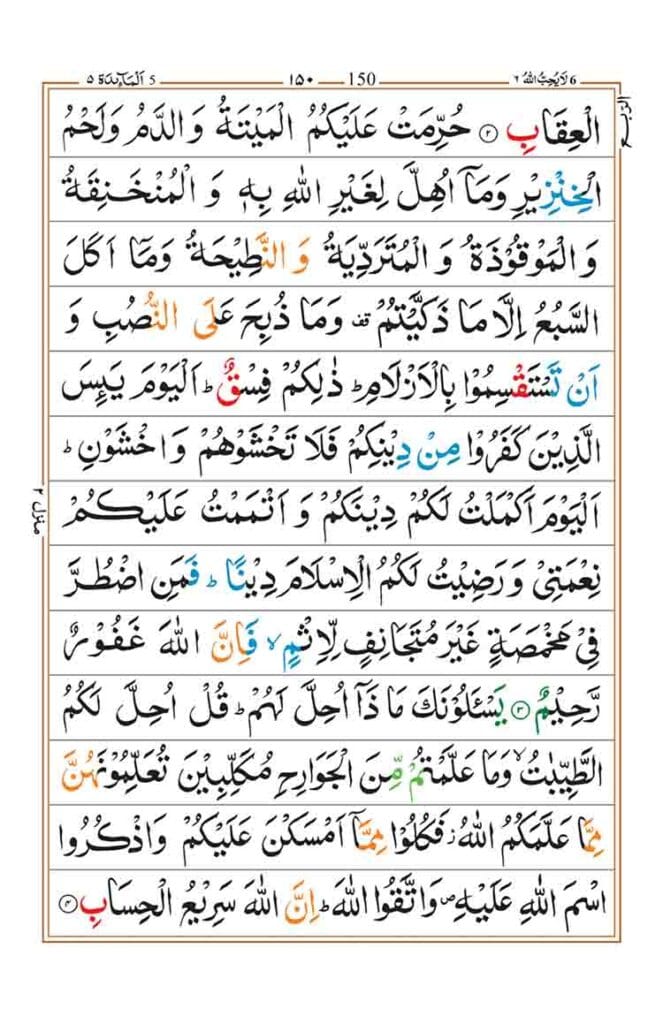 6 لَا یُحِبُّ اللّٰهُ ٦ 150 ١٥٠ 5 اَلْمَآىِٕدَة ٥
الرّبع
الْعِقَابِ ۝٢ حُرِّمَتْ عَلَیْكُمُ الْمَیْتَةُ وَ الدَّمُ وَ لَحْمُ
الْخِنْزِیْرِ وَ مَاۤ اُهِلَّ لِغَیْرِ اللّٰهِ بِهٖ وَ الْمُنْخَنِقَةُ
وَ الْمَوْقُوْذَةُ وَ الْمُتَرَدِّیَةُ وَ النَّطِیْحَةُ وَ مَاۤ اَكَلَ
السَّبُعُ اِلَّا مَا ذَكَّیْتُمْ ۫ وَ مَا ذُبِحَ عَلَى النُّصُبِ وَ
اَنْ تَسْتَقْسِمُوْا بِالْاَزْلَامِ ؕ ذٰلِكُمْ فِسْقٌ ؕ اَلْیَوْمَ یَىِٕسَ
الَّذِیْنَ كَفَرُوْا مِنْ دِیْنِكُمْ فَلَا تَخْشَوْهُمْ وَ اخْشَوْنِ ؕ
اَلْیَوْمَ اَكْمَلْتُ لَكُمْ دِیْنَكُمْ وَ اَتْمَمْتُ عَلَیْكُمْ
منزل ٢
نِعْمَتِیْ وَ رَضِیْتُ لَكُمُ الْاِسْلَامَ دِیْنًا ؕ فَمَنِ اضْطُرَّ
فِیْ مَخْمَصَةٍ غَیْرَ مُتَجَانِفٍ لِّاِثْمٍ ۙ فَاِنَّ اللّٰهَ غَفُوْرٌ
رَّحِیْمٌ ۝٣ یَسْـَٔلُوْنَكَ مَا ذَاۤ اُحِلَّ لَهُمْ ؕ قُلْ اُحِلَّ لَكُمُ
الطَّیِّبٰتُ ۙ وَ مَا عَلَّمْتُمْ مِّنَ الْجَوَارِحِ مُكَلِّبِیْنَ تُعَلِّمُوْنَهُنَّ
مِمَّا عَلَّمَكُمُ اللّٰهُ ؗ فَكُلُوْا مِمَّاۤ اَمْسَكْنَ عَلَیْكُمْ وَ اذْكُرُوا
اسْمَ اللّٰهِ عَلَیْهِ ۪ وَ اتَّقُوا اللّٰهَ ؕ اِنَّ اللّٰهَ سَرِیْعُ الْحِسَابِ ۝٤